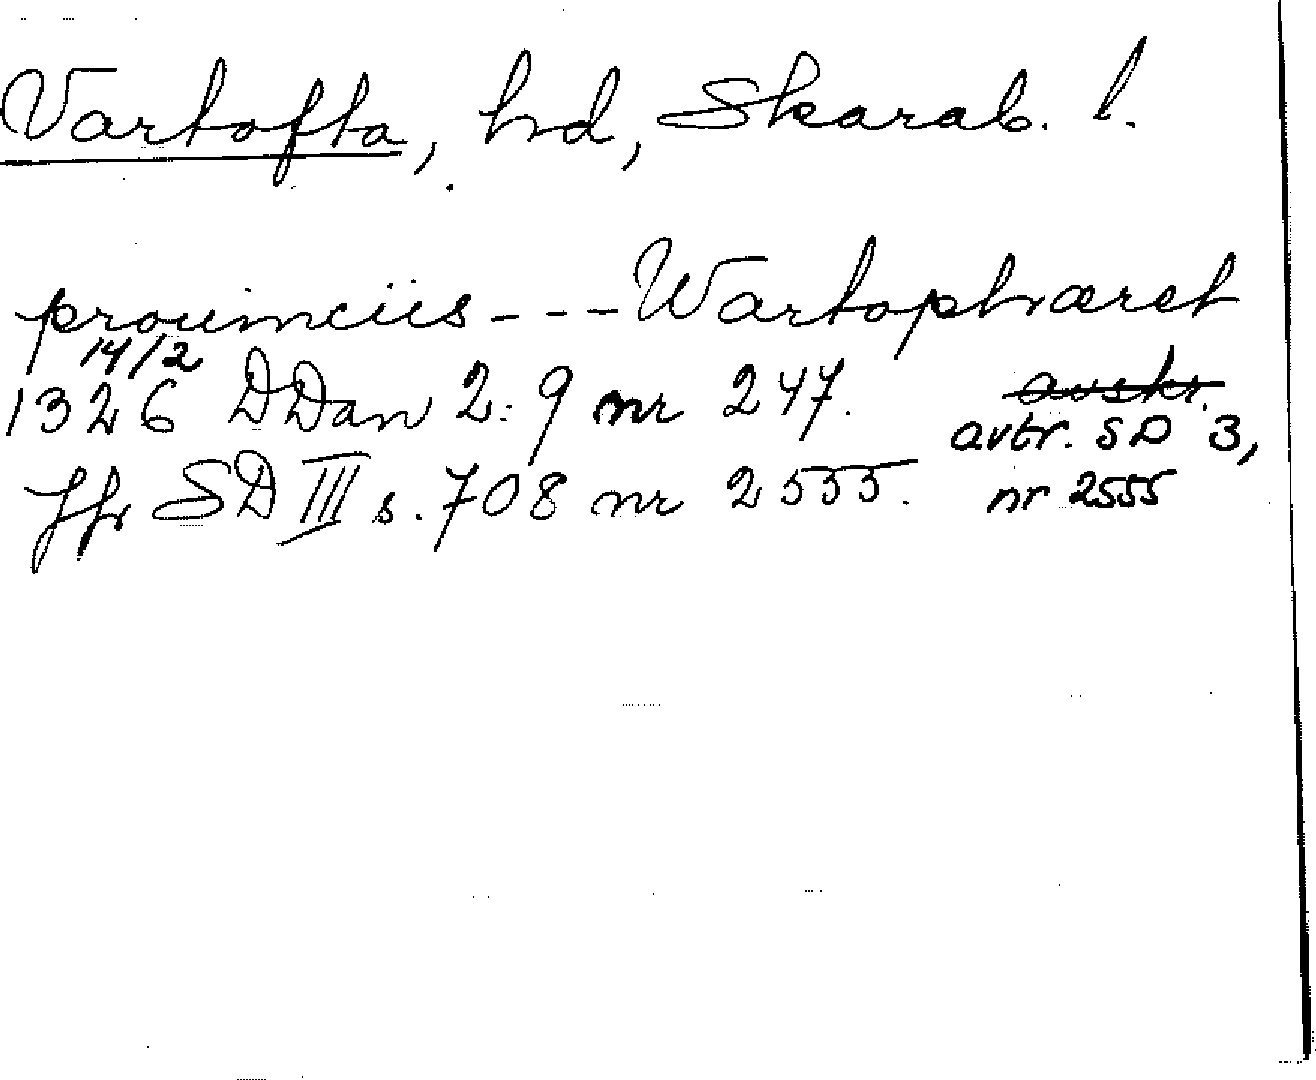 Vartofta, hd, Skarab. l.
prouinciis --- Wartophæret
14/2
1326 DDan 2:9 nr 247. avskr.
avtr. SD 3,
Jfr SD III s. 708 nr 2555. nr 2555